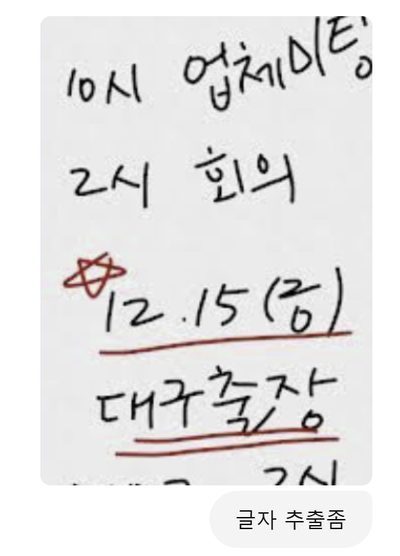 10시 업체미팅
2시 회의
☆12.15(금)
대구출장
2시
글자 추출좀